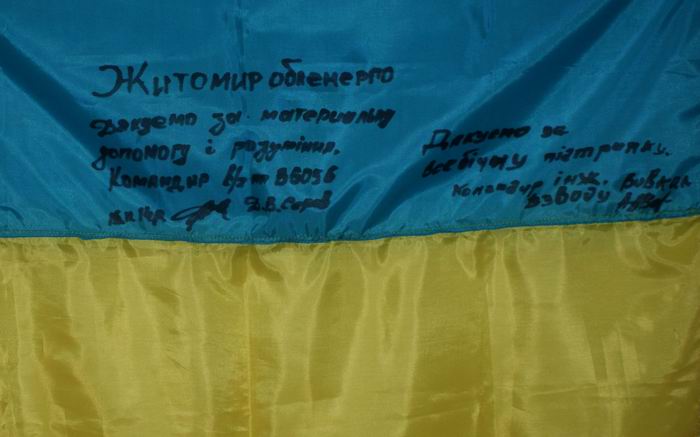 Житомиробленерго
Дякуємо за матеріальну
допомогу і розуміння.
Командир в/ч В6056
Д.В.Сиров
Дякуємо за
всебічну підтримку.
Командир інж.
взводу